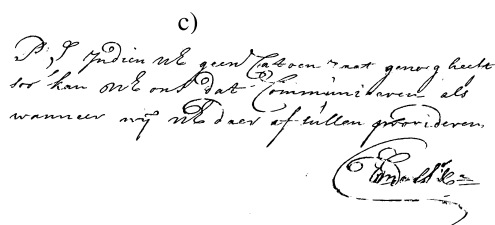 c)
P: S Indien UE geen Catoen zaat genoeg heeft
soo kan UE ons dat Communiceren als
wanneer wij UE daer af sullen provideren